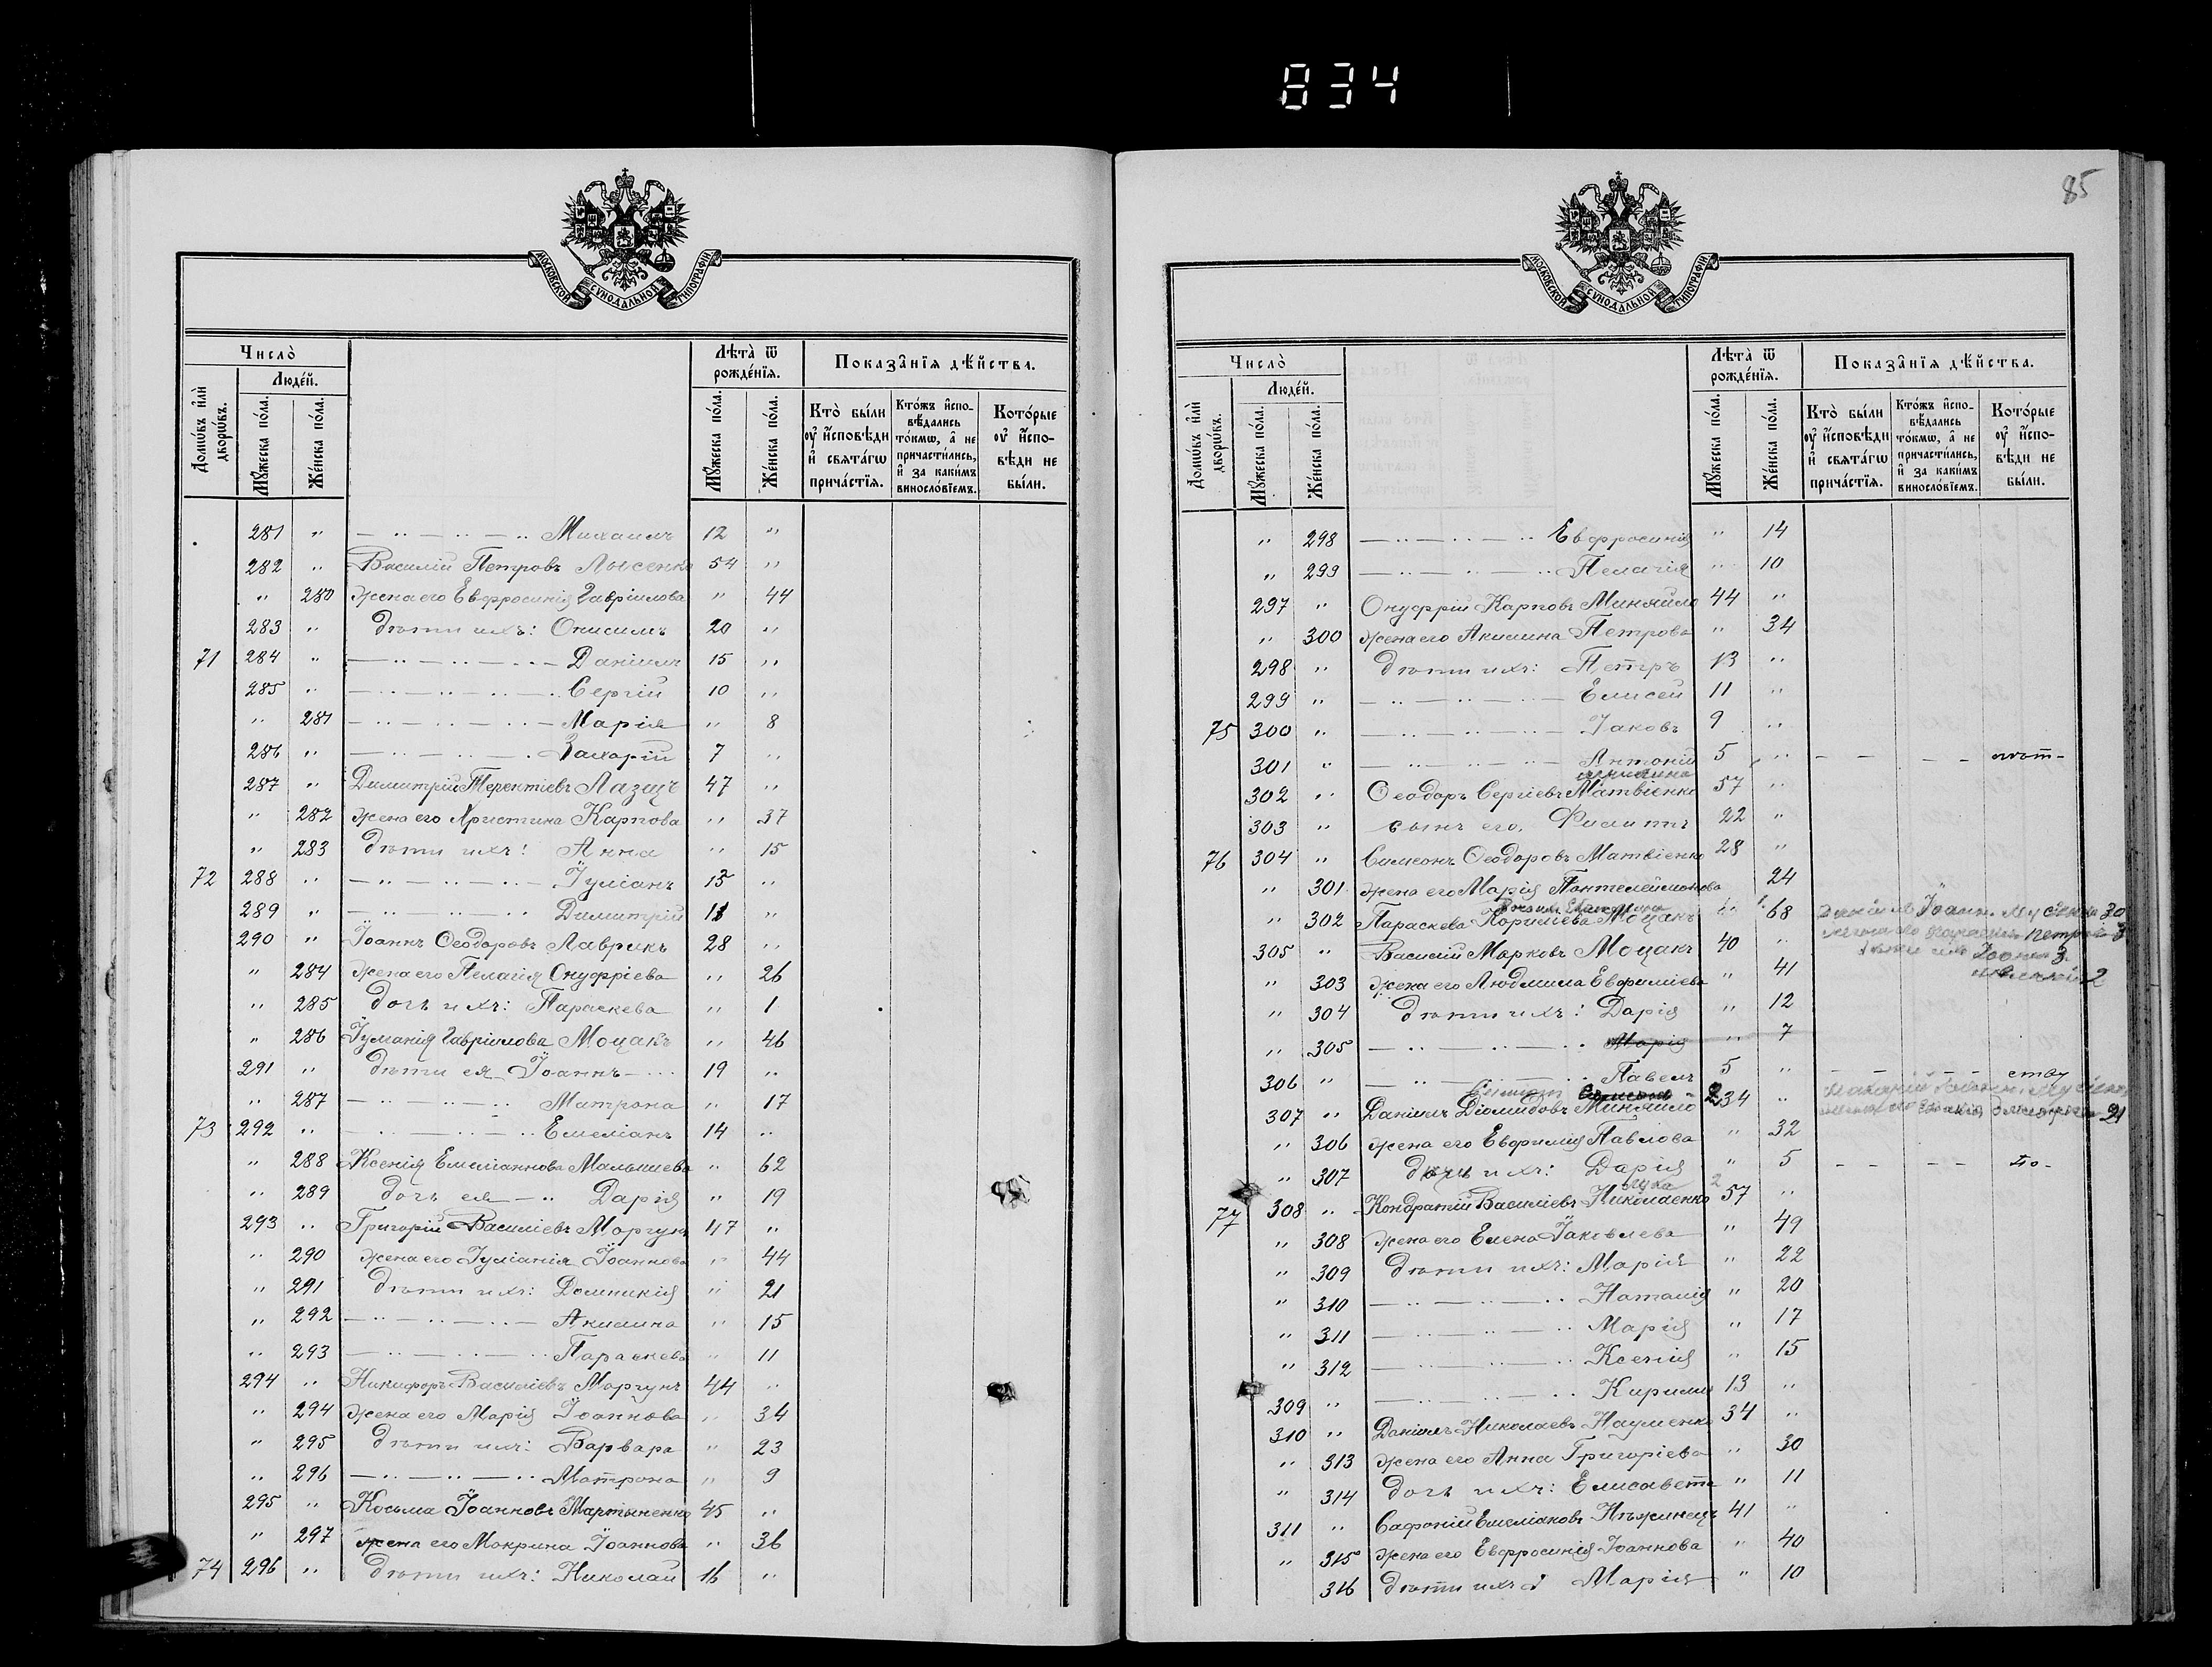 834
МОСКОВСКОЙ СѴНОДАЛЬНОЙ ТИПОГРАФІИ
Число̀
Людéй.
Домѡ́въ и҆лѝ дворѡ́въ.
Мꙋ́жеска по́ла.
Же́нска по́ла.
Лѣта̀ ѿ рожде́нїѧ.
Мꙋ́жеска по́ла.
Же́нска по́ла.
Показа̑нїѧ дѣ́йства.
Кто̀ бы́ли ᲂу҆ и҆́сповѣди и҆ свѧта́гѡ прича́стїѧ.
Кто́жъ и҆спо-вѣдались то́кмѡ, а҆ не причасти́лись, и҆ за каки́мъ винословїемъ.
Кото́рые ᲂу҆ и҆́спо-вѣди не бы́ли.
281 " — " — " — " Михаилъ 12 "
282 " Василій Петровъ Лысенко 54 "
" 280 жена его Евфросинія Гавріилова " 44
283 " дѣти ихъ: Онисимъ 20 "
71 284 " — " — " — " — Даніилъ 15 "
285 " — " — " — " Сергій 10 "
" 281 — " — " — " — Марія " 8
286 " — " — " — " Захарій 7 "
287 " Димитрій Терентіевъ Лазецъ 47 "
" 282 жена его Христина Карпова " 37
" 283 дѣти ихъ: Анна " 15
72 288 " — " — " — " — Іуліанъ 13 "
289 " — " — " — " Димитрій 11 "
290 " Іоаннъ Ѳеодоровъ Лаврикъ 28 "
" 284 жена его Пелагія Онуфріева " 26
" 285 дочь ихъ: Параскева " 1
" 286 Іуліанія Гавріилова Моцакъ " 46
291 " дѣти ея Іоаннъ 19 "
" 287 — " — " — " Матрона " 17
73 292 " — " — " — " Емеліанъ 14 "
" 288 Ксенія Емеліаннова Малышева " 62
" 289 дочь ея — " Дарія " 19
293 " Григорій Василіевъ Моргунъ 47 "
" 290 жена его Іуліанія Іоаннова " 44
" 291 дѣти ихъ: Домникія " 21
" 292 — " — " — " — Акилина " 15
" 293 — " — " — " Параскева " 11
294 " Никифоръ Василіевъ Моргунъ 44 "
" 294 жена его Марія Іоаннова " 34
" 295 дѣти ихъ: Варвара " 23
" 296 — " — " — " Матрона " 9
295 " Косьма Іоанновъ Мартыненко 45 "
" 297 жена его Макрина Іоаннова " 36
74 296 " дѣти ихъ: Николай 16 "
85
МОСКОВСКОЙ СѴНОДАЛЬНОЙ ТИПОГРАФІИ
Число̀
Людéй.
Домѡ́въ и҆лѝ дворѡ́въ.
Мꙋ́жеска по́ла.
Же́нска по́ла.
Лѣта̀ ѿ рожде́нїѧ.
Мꙋ́жеска по́ла.
Же́нска по́ла.
Показа̑нїѧ дѣ́йства.
Кто̀ бы́ли ᲂу҆ и҆́сповѣди и҆ свѧта́гѡ прича́стїѧ.
Кто́жъ и҆спо-вѣдались то́кмѡ, а҆ не причасти́лись, и҆ за каки́мъ винословїемъ.
Кото́рые ᲂу҆ и҆́спо-вѣди не бы́ли.
" 298 — " — " — " Евфросинія " 14
" 299 — " — " — " Пелагія " 10
297 " Онуфрій Карповъ Миняйло 44 "
" 300 жена его Акилина Петрова " 34
298 " дѣти ихъ: Петръ 13 "
299 " — " — " — " — Елисей 11 "
75 300 " — " — " — " — Іаковъ 9 "
301 " — " — " — " — Антоній 5 "
302 " Ѳеодоръ Сергіевъ Матвіенко 57 "
303 " сынъ его, Филиппъ 22 "
76 304 " Симеонъ Ѳеодоровъ Матвіенко 28 "
" 301 жена его Марія Пантелеймонова 24
" 302 Параскева Корнилева Моцакъ 68
305 " Василій Марковъ Моцакъ 40 "
" 303 жена его Людмила Евфиміева " 41
" 304 дѣти ихъ: Дарія " 12
" 305 — " — " — " Марія " 7
306 " — " — " — " Павелъ 5 "
307 " Даніилъ Діомидовъ Миняйло 34 "
" 306 жена его Евфимія Павлова " 32
" 307 дочь ихъ: Дарія " 5
77 308 " Кондратій Василіевъ Николаенко 57 "
" 308 жена его Елена Іаковлева " 49
" 309 дѣти ихъ: Марія " 22
" 310 — " — " — " Наталія " 20
" 311 — " — " — Марія " 17
" 312 — " — " Ксенія " 15
309 " — " — " — " Кириллъ 13 "
310 " Даніилъ Николаевъ Науменко 34 "
" 313 жена его Анна Григоріева " 30
" 314 дочь ихъ: Елисавета " 11
311 " Сафоній Емеліановъ Нѣжинецъ 41 "
" 315 жена его Евфросинія Іоаннова " 40
316 дѣти ихъ: Марія " 10